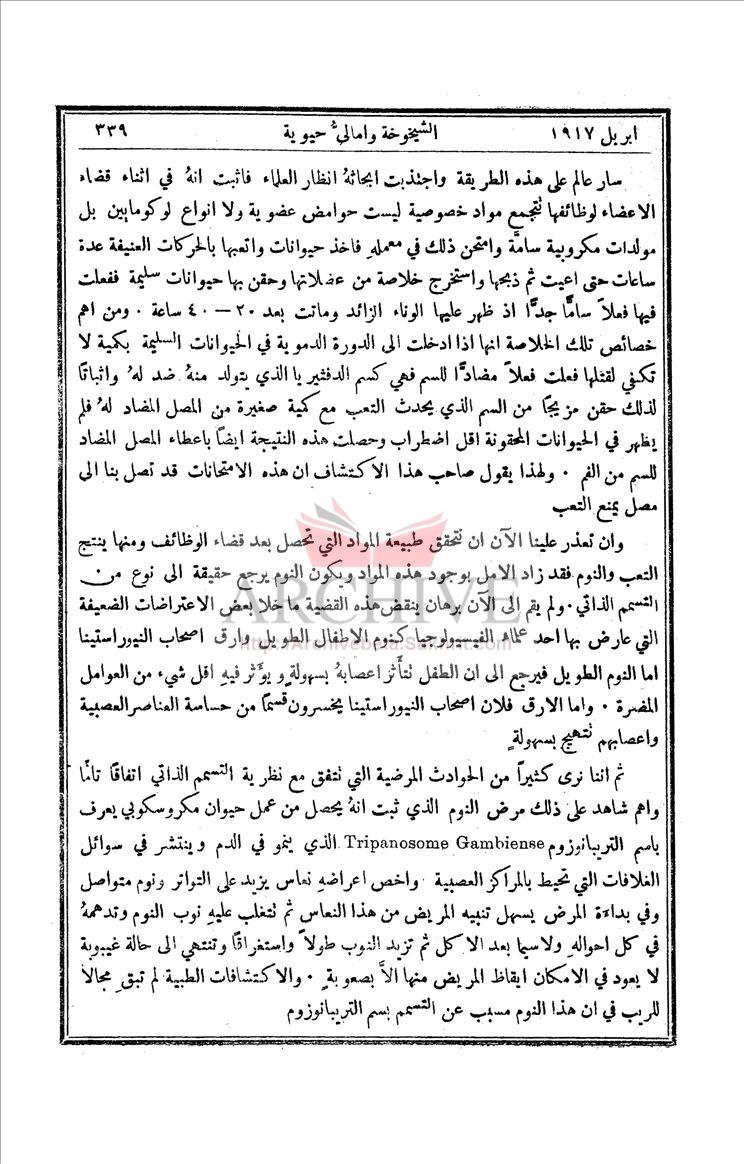 ابريل ١٩١٧ الشيخوخة وامالي حيوية ٣٣٩
سار عالم على هذه الطريقة واجتذبت ابحاثهُ انظار العلماء فاثبت انهُ في اثناء قضاء
الاعضاء لوظائفها تتجمع مواد خصوصية ليست حوامض عضوية ولا انواع لوكومايين بل
مولدات مكروبية سامَّة وامتحن ذلك في معملهِ فاخذ حيوانات واتعبها بالحركات العنيفة عدة
ساعات حتى اعيت ثم ذبحها واستخرج خلاصة من عضلاتها وحقن بها حيوانات سليمة ففعلت
فيها فعلاً سامًّا جدًّا اذ ظهر عليها الوناء الزائد وماتت بعد ٢٠ — ٤٠ ساعة . ومن اهم
خصائص تلك الخلاصة انها اذا ادخلت الى الدورة الدموية في الحيوانات السليمة بكمية لا
تكفي لقتلها فعلت فعلاً مضادًّا للسم فهي كسم الدفثيريا الذي يتولد منهُ ضد لهُ واثباتًا
لذلك حقن مزيجًا من السم الذي يحدث التعب مع كمية صغيرة من المصل المضاد لهُ فلم
يظهر في الحيوانات المحقونة اقل اضطراب وحصلت هذه النتيجة ايضًا باعطاء المصل المضاد
للسم من الفم . ولهذا يقول صاحب هذا الاكتشاف ان هذه الامتحانات قد تصل بنا الى
مصل يمنع التعب
وان تعذر علينا الآن ان نتحقق طبيعة المواد التي تحصل بعد قضاء الوظائف ومنها ينتج
التعب والنوم فقد زاد الامل بوجود هذه المواد ويكون النوم يرجع حقيقة الى نوع من
التسمم الذاتي . ولم يقم الى الآن برهان ينقض هذه القضية ما خلا بعض الاعتراضات الضعيفة
التي عارض بها احد علماء الفيسيولوجيا كنوم الاطفال الطويل وارق اصحاب النيوراستينا
اما النوم الطويل فيرجع الى ان الطفل تتأثر اعصابهُ بسهولةٍ ويؤثر فيهِ اقل شيء من العوامل
المضرة . واما الارق فلان اصحاب النيوراستينا يخسرون قسمًا من حساسة العناصر العصبية
واعصابهم تتهيج بسهولةٍ
ثم اننا نرى كثيراً من الحوادث المرضية التي تتفق مع نظرية التسمم الذاتي اتفاقًا تامًّا
واهم شاهد على ذلك مرض النوم الذي ثبت انهُ يحصل من عمل حيوان مكروسكوبي يعرف
باسم التريبانوزوم Tripanosome Gambiense الذي ينمو في الدم وينتشر في سوائل
الغلافات التي تحيط بالمراكز العصبية واخص اعراضهِ نعاس يزيد على التواتر ونوم متواصل
وفي بداءة المرض يسهل تنبيه المريض من هذا النعاس ثم تتغلب عليهِ نوب النوم وتدهمهُ
في كل احوالهِ ولاسيما بعد الاكل ثم تزيد النوب طولاً واستغراقًا وتنتهي الى حالة غيبوبة
لا يعود في الامكان ايقاظ المريض منها الاَّ بصعوبةٍ . والاكتشافات الطبية لم تبقِ مجالاً
للريب في ان هذا النوم مسبب عن التسمم بسم التريبانوزوم
ARCHIVE
http://Archivebeta.Sakhrit.com